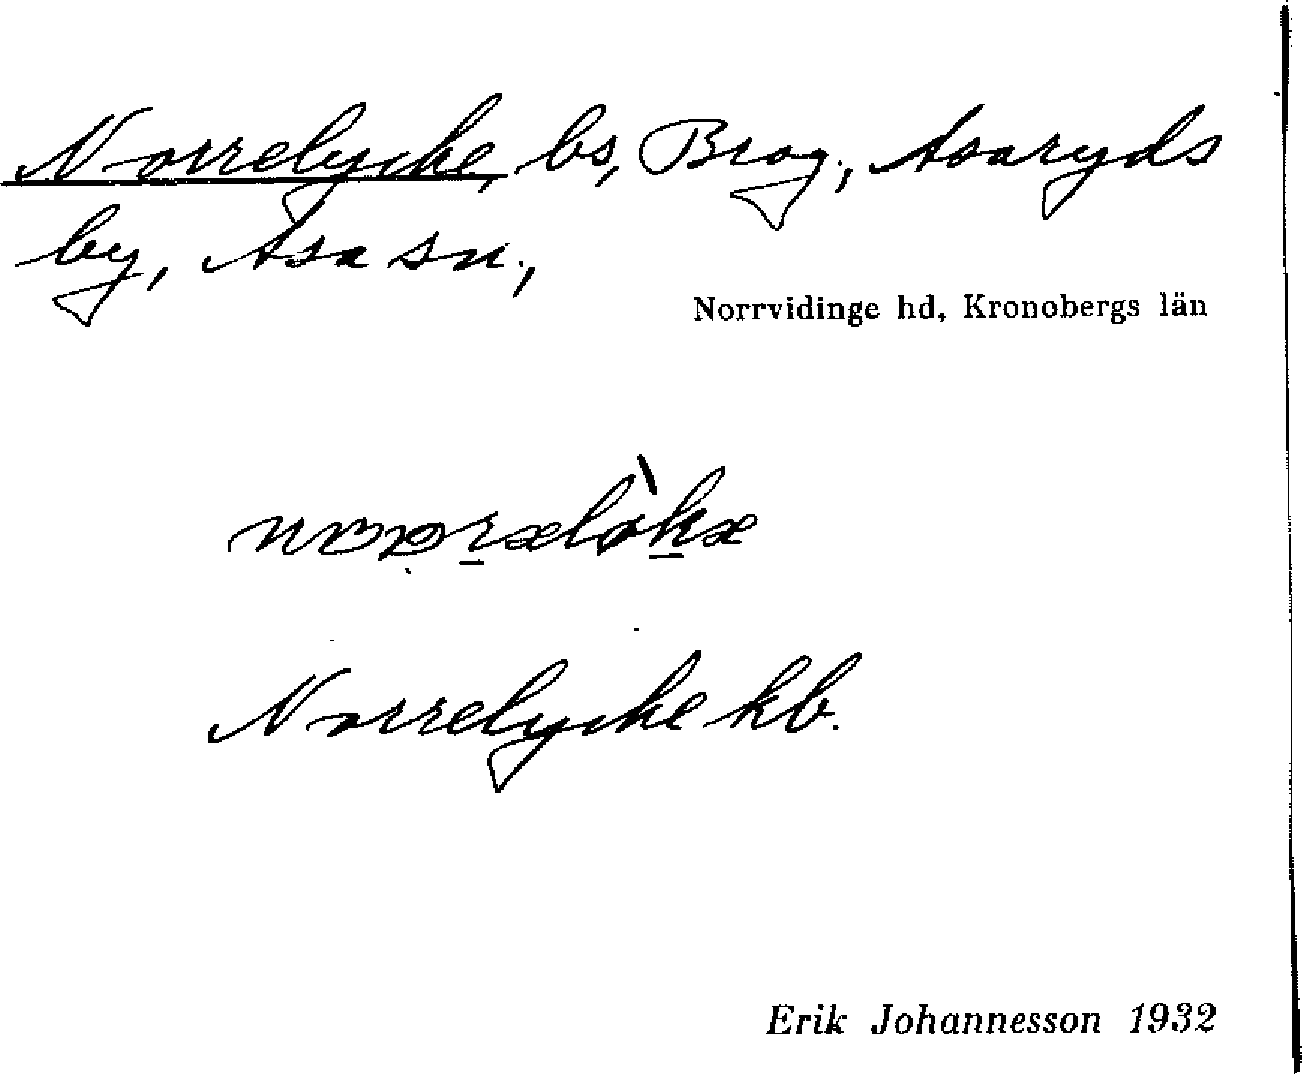 Norrelycke, bs, Brog., Asaryds
by, Asa sn.,
Norrvidinge hd, Kronobergs län
Norrelycke kb.
Erik Johannesson 1932